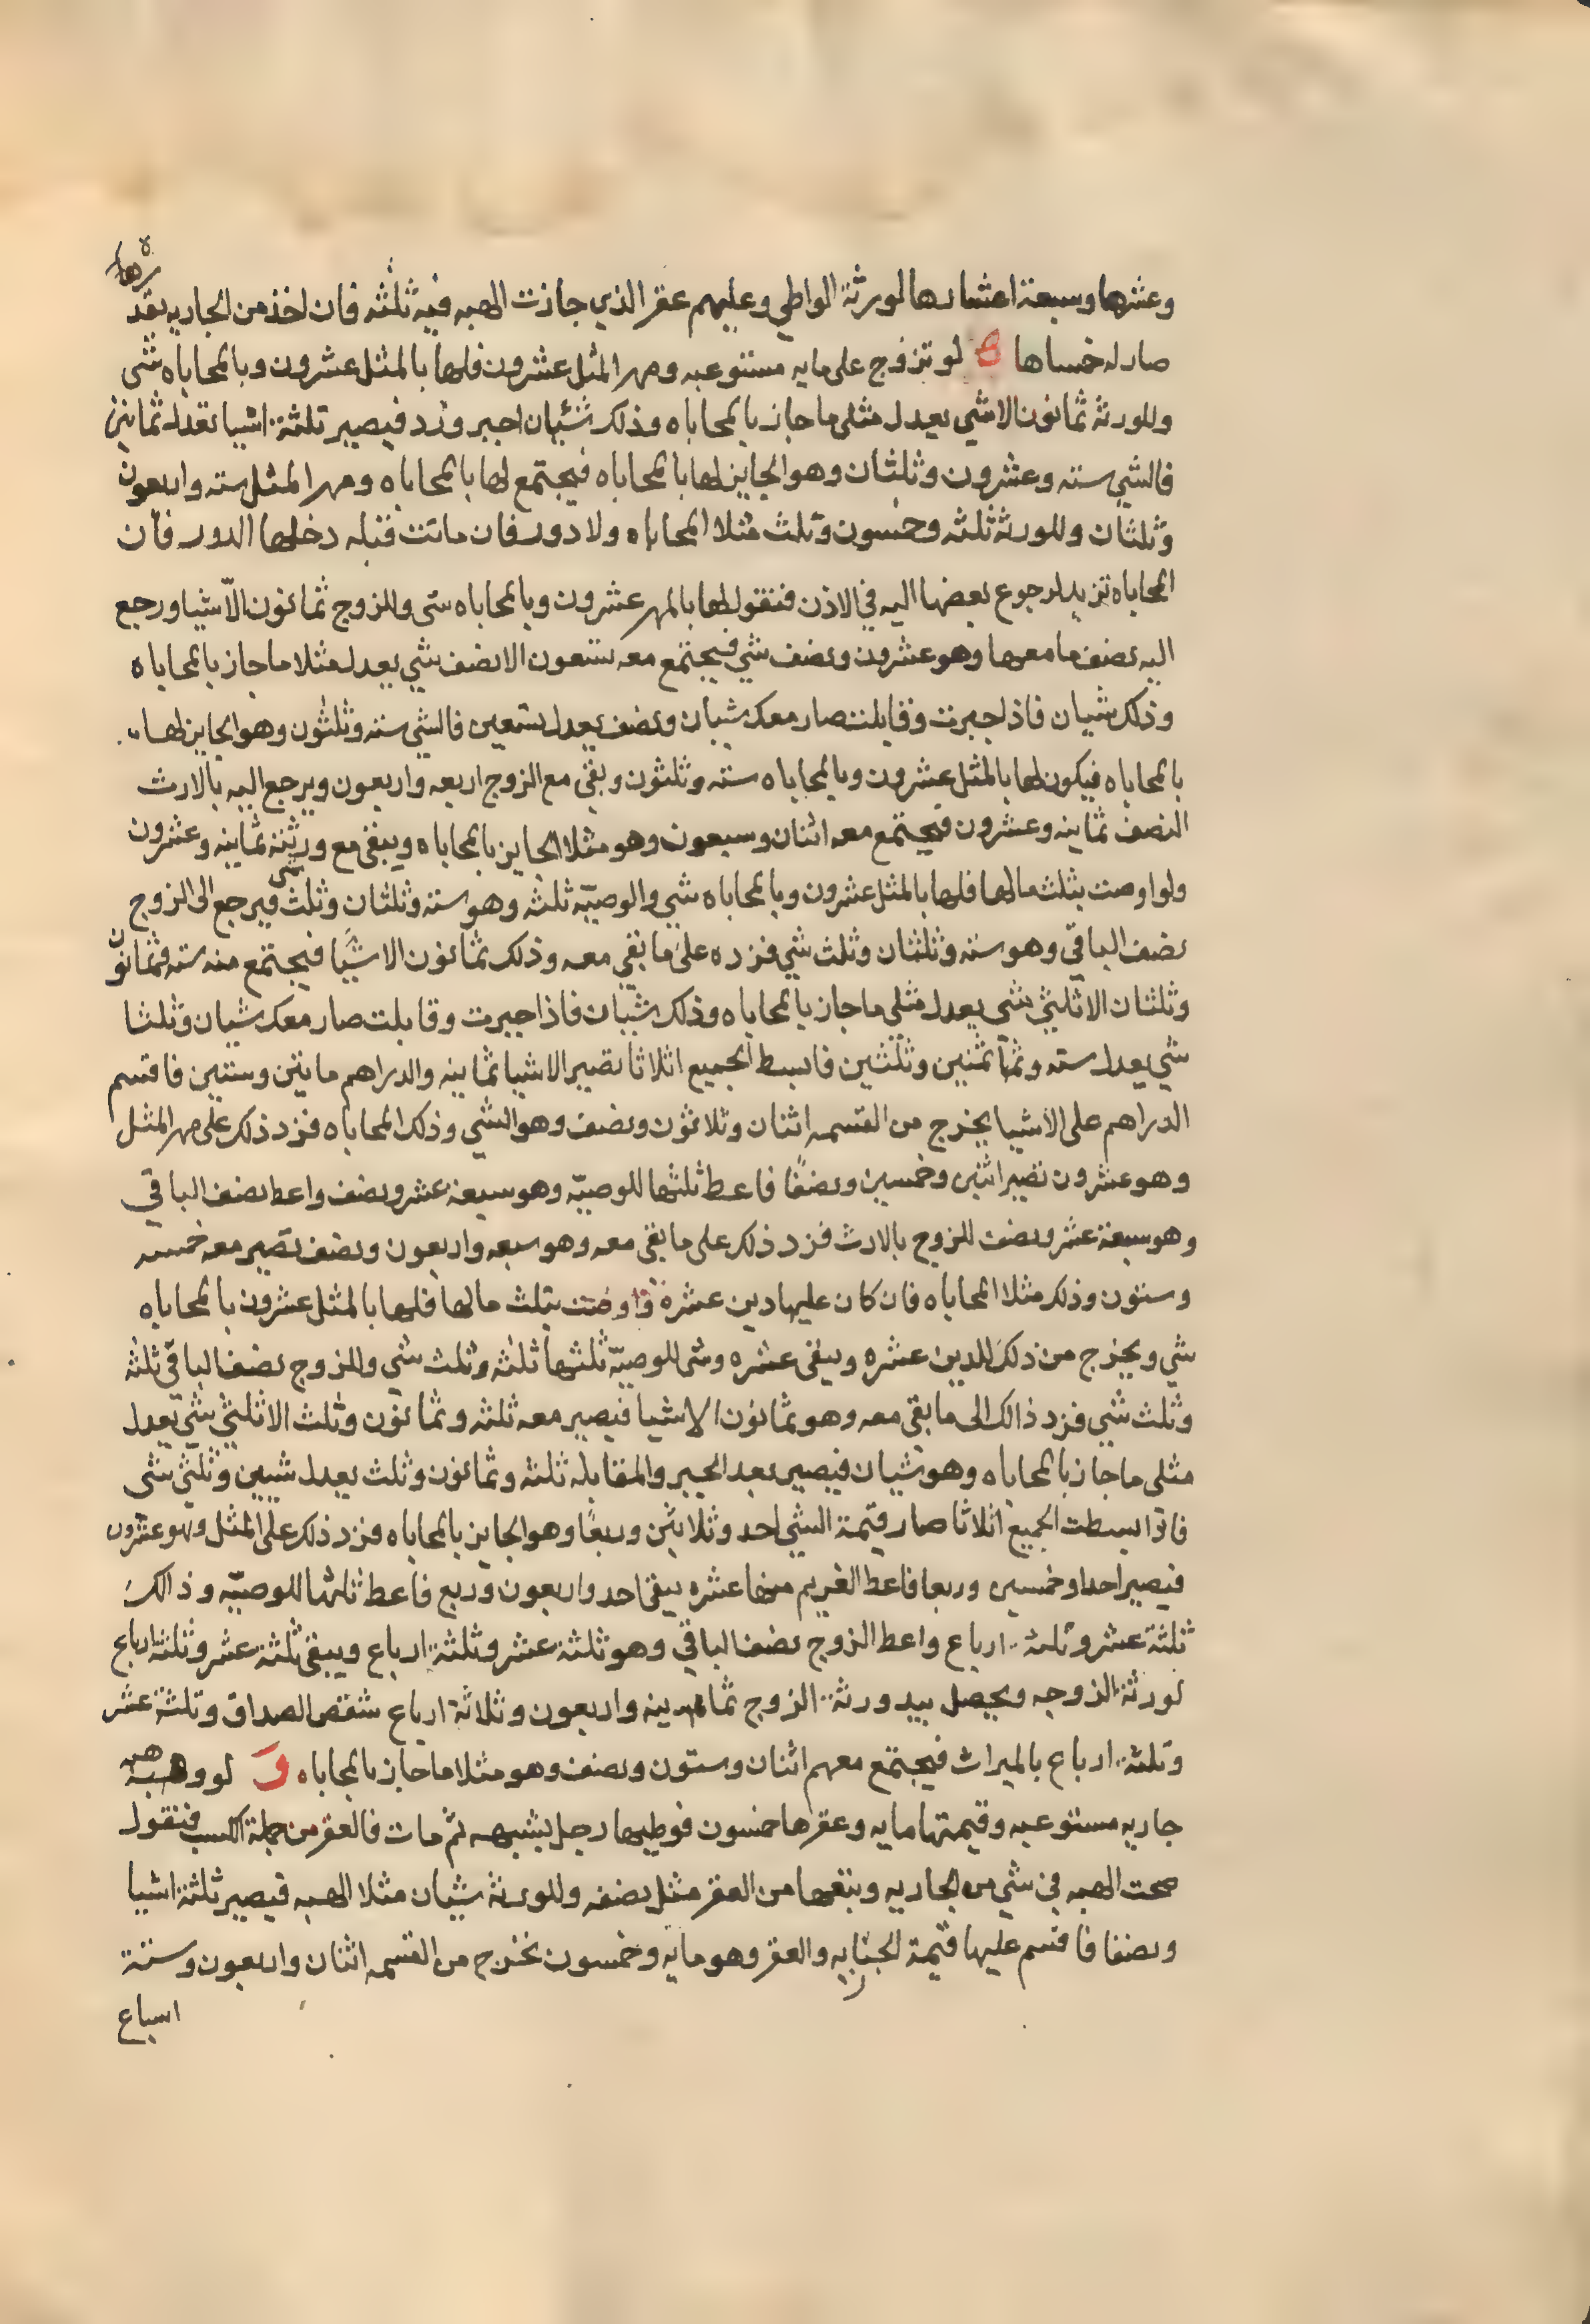 وعشرها وسبعة اعشارها لورثة الواطي وعليهم عقر الذي جازت الهبه فيه ثلثه فان اخذ من الجاريه بقدرها
صار له خمساها ه لو تزوج على مايه مستوعبه ومهر المثل عشرون فلها بالمثل عشرون وبالمحاباه شى
وللورثة ثمانون الا شي يعدل مثلي ما جاز بالمحاباه وذلك شئيان اجبر وزد فيصير ثلثة اشيا تعدل ثمانين
فالشي سته وعشرون وثلثان وهو الجايز لها بالمحاباه فيجتمع لها بالمحاباه ومهر المثل سته واربعون
وثلثان وللورثه ثلثه وخمسون وثلث مثلا المحاباه ولا دور فان ماتت قبله دخلها الدور فان
المحاباه تزيد لرجوع بعضها اليه في الاذن فنقول لها بالمهر عشرون وبالمحاباه شى وللزوج ثمانون الّا شيا ورجع
اليه نصف ما معها وهو عشرون ونصف شي فيجتمع معه تسعون الا نصف شي يعدل مثلا ما جاز بالمحاباه
وذلك شيان فاذا جبرت وقابلت صار معك شيان ونصف يعدل تسعين فالشي سته وثلثون وهو الجايز لها
بالمحاباه فيكون لها بالمثل عشرون وبالمحاباه سته وثلثون وبقي مع الزوج اربعه واربعون ويرجع اليه بالارث
النصف ثمانيه وعشرون فيجتمع معه اثنان وسبعون وهو مثلا الجايز بالمحاباه ويبقى مع ورثته ثمانيه وعشرون
ولو اوصت بثلث مالها فلها بالمثل عشرون وبالمحاباه شي والوصيّه ثلثه وهو سته وثلثان وثلث شى فيرجع الى الزوج
نصف الباقي وهو سته وثلثان وثلث شي فزده على ما بقي معه وذلك ثمانون الا شيًا فيجتمع منه سته وثمانون
وثلثان الا ثلثي شى يعدل مثلي ما جاز بالمحاباه وذلك شيان فاذا جبرت وقابلت صار معك شيان وثلثا
شي يعدل سته وثمانين وثلثين فابسط الجميع اثلاثا تصير الاشيا ثمانيه والدراهم مايتين وستين فاقسم
الدراهم على الاشيا يخرج من القسمه اثنان وثلاثون ونصف وهو الشي وذلك المحاباه فزد ذلك على مهر المثل
وهو عشرون تصير اثنين وخمسين ونصفًا فاعط ثلثها للوصيّه وهو سبعة عشر ونصف واعط نصف الباقي
وهو سبعة عشر ونصف للزوج بالارث فزد ذلك على ما بقى معه وهو سبعه واربعون ونصف تصير معه خمسه
وستون وذلك مثلا المحاباه فان كان عليها دين عشره واوصت بثلث مالها فلها بالمثل عشرون بالمحاباه
شي ويخرج من ذلك للدين عشره ويبقى عشره وشى للوصيّه ثلثها ثلثه وثلث شي وللزوج نصف الباقي ثلثه
وثلث شي فزد ذالك الى ما بقى معه وهو ثمانون الا شيا فيصير معه ثلثه وثمانون وثلث الا ثلثي شي يعدل
مثلى ما جاز بالمحاباه وهو شيان فيصير بعد الجبر والمقابله ثلثه وثمانون وثلث يعدل شيين وثلثي شى
فاذا بسطت الجميع اثلاثا صار قيمة الشي احد وثلاثين وربعًا وهو الجايز بالمحاباه فزد ذلك على المثل وهو عشرون
فيصير احدا وخمسين وربعا فاعط الغريم منها عشره يبقى احد واربعون وربع فاعط ثلثها للوصيّه وذالك
ثلثة عشر وثلثة ارباع واعط الزوج نصف الباقي وهو ثلثة عشر وثلثة ارباع ويبقى ثلثة عشر وثلثة ارباع
لورثة الزوجه ويحصل بيد ورثة الزوج ثمانيه واربعون وثلاثة ارباع شقص الصداق وثلثة عشر
وثلثة ارباع بالميراث فيجتمع معهم اثنان وستون ونصف وهو مثلا ما جاز بالمحاباه و لو وهبه
جاريه مستوعبه وقيمتها مايه وعقرها خمسون فوطيها رجل بشبهه ثم مات فالعقر من جملة الكسب فنقول
صحت الهبه في شي من الجاريه وبتبعها من العقر مثل نصفه وللورثة شيان مثلا الهبه فيصير ثلثة اشيا
ونصفا فاقسم عليها قيمة الجاريه والعقر وهو مايه وخمسون تخرج من القسمه اثنان واربعون وستة
اسباع